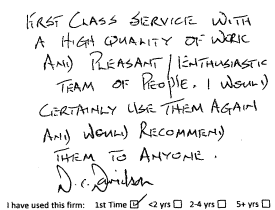 FIRST CLASS SERVICE WITH
A HIGH QUALITY OF WORK
AND PLEASANT / ENTHUSIASTIC
TEAM OF PEOPLE. I WOULD
CERTAINLY USE THEM AGAIN
AND WOULD RECOMMEND
THEM TO ANYONE.
D. C. Davidson
I have used this firm: 1st Time ☑ <2 yrs ☐ 2-4 yrs ☐ 5+ yrs ☐